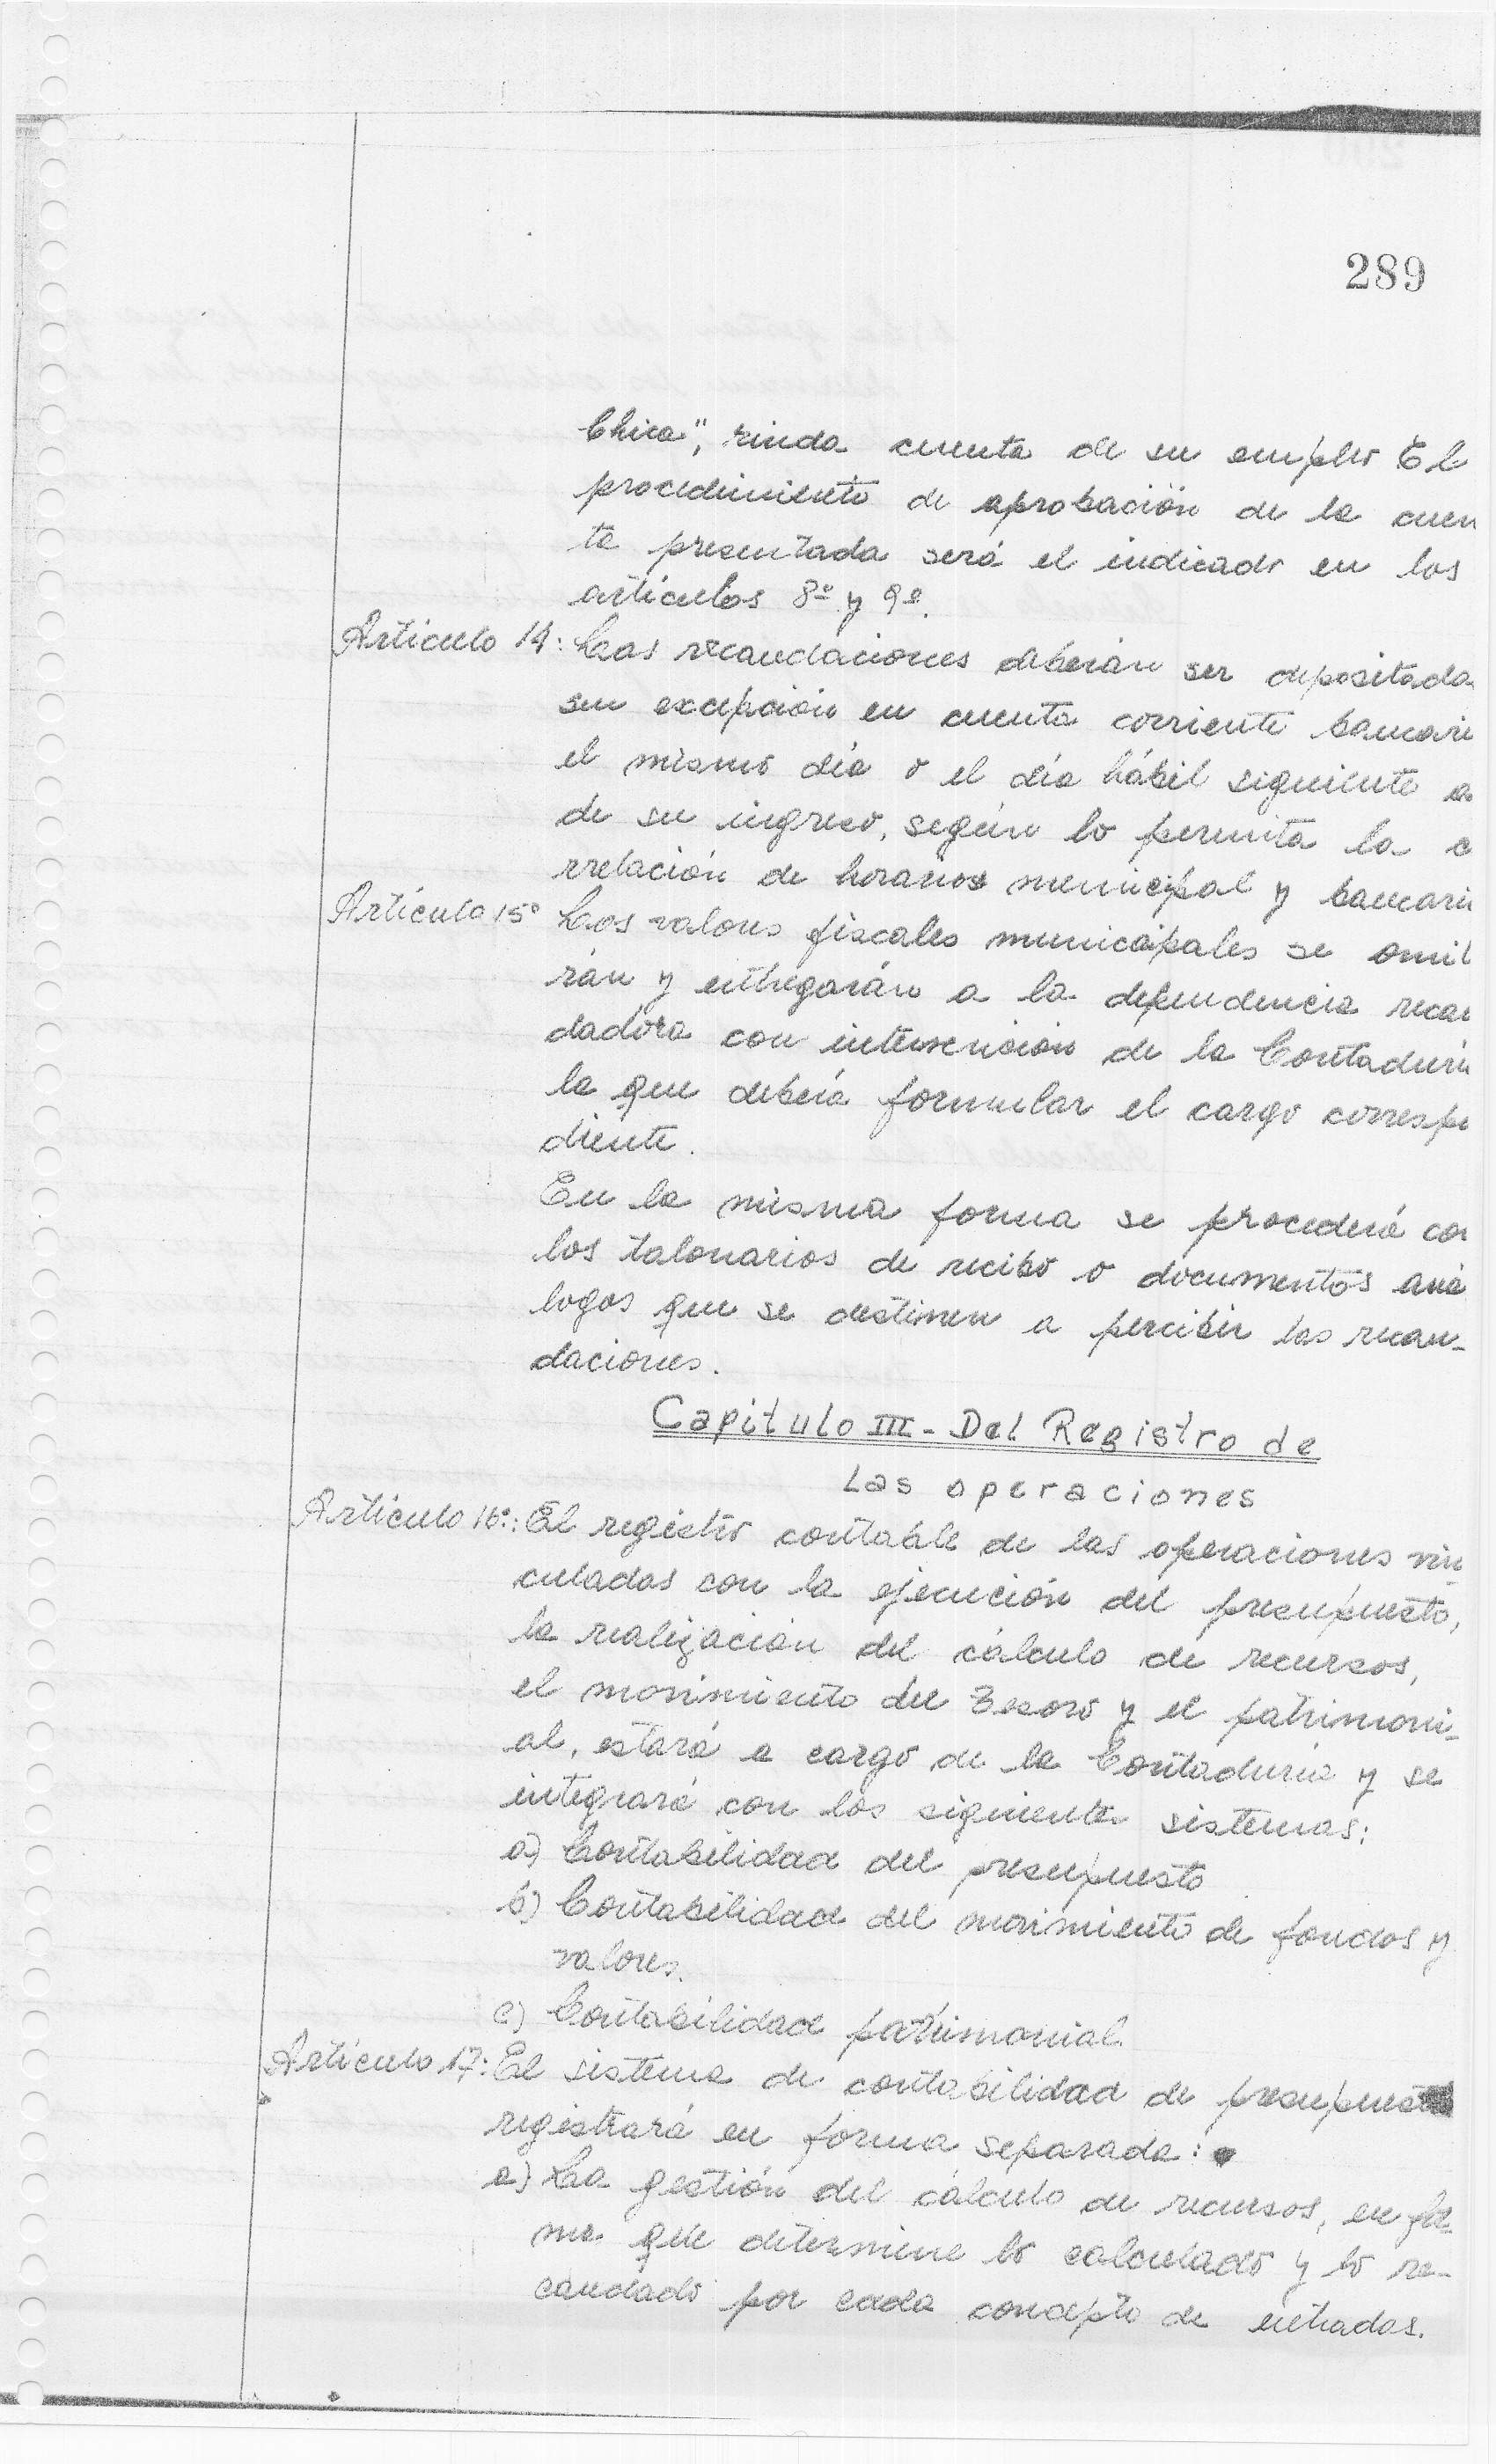 289
Chica", rinda cuenta de su empleo El
procedimiento de aprobación de la cuen
ta presentada será el indicado en los
artículos 8º y 9º.
Artículo 14: Las recaudaciones deberán ser depositada
sin excepción en cuenta corriente bancari
el mismo día o el día hábil siguiente a
de su ingreso, según lo permita la c
rrelación de horarios municipal y bancari
Artículo 15º Los valores fiscales municipales se omit
rán y entregarán a la dependencia recau
dadora con intervención de la Contadurí
la que deberá formular el cargo correspo
diente.
En la misma forma se procederá con
los talonarios de recibo o documentos aná
logos que se destinen a percibir las recau-
daciones.
Capítulo III - Del Registro de
Las operaciones
Artículo 16º: El registro contable de las operaciones vin
culadas con la ejecución del presupuesto,
la realización del cálculo de recursos,
el movimiento del Tesoro y el patrimoni-
al, estará a cargo de la Contaduría y se
integrará con los siguientes sistemas:
a) Contabilidad del presupuesto
b) Contabilidad del movimiento de fondos y
valores.
c) Contabilidad patrimonial.
Artículo 17: El sistema de contabilidad de presupuesto
registrará en forma separada:
a) La gestión del cálculo de recursos, en for
ma que determine lo calculado y lo re-
caudado por cada concepto de entradas.